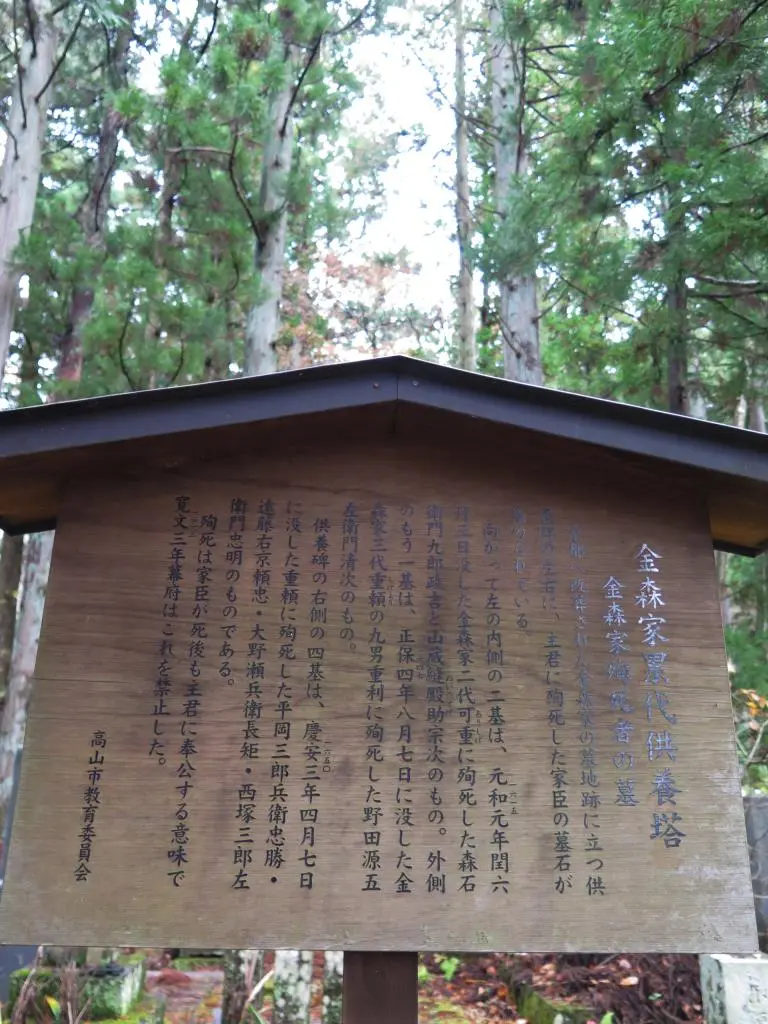 金森家累代供養塔
金森家殉死者の墓
された金森家の墓地跡に立つ供
養碑の左右に、主君に殉死した家臣の墓石が
ている。
向かって左の内側の二基は、元和元年閏六
一六一五
月三日没した金森家二代可重に殉死した森石
ありしげ
衛門九郎政吉と山蔵縫殿助宗次のもの。外側
のもう一基は、正保四年八月七日に没した金
一六四七
森家三代重頼の九男重利に殉死した野田源五
左衛門清次のもの。
供養碑の右側の四基は、慶安三年四月七日
一六五〇
に没した重頼に殉死した平岡三郎兵衛忠勝・
遠藤右京頼忠・大野瀬兵衛長矩・西塚三郎左
衛門忠明のものである。
殉死は家臣が死後も主君に奉公する意味で
寛文三年幕府はこれを禁止した。
高山市教育委員会